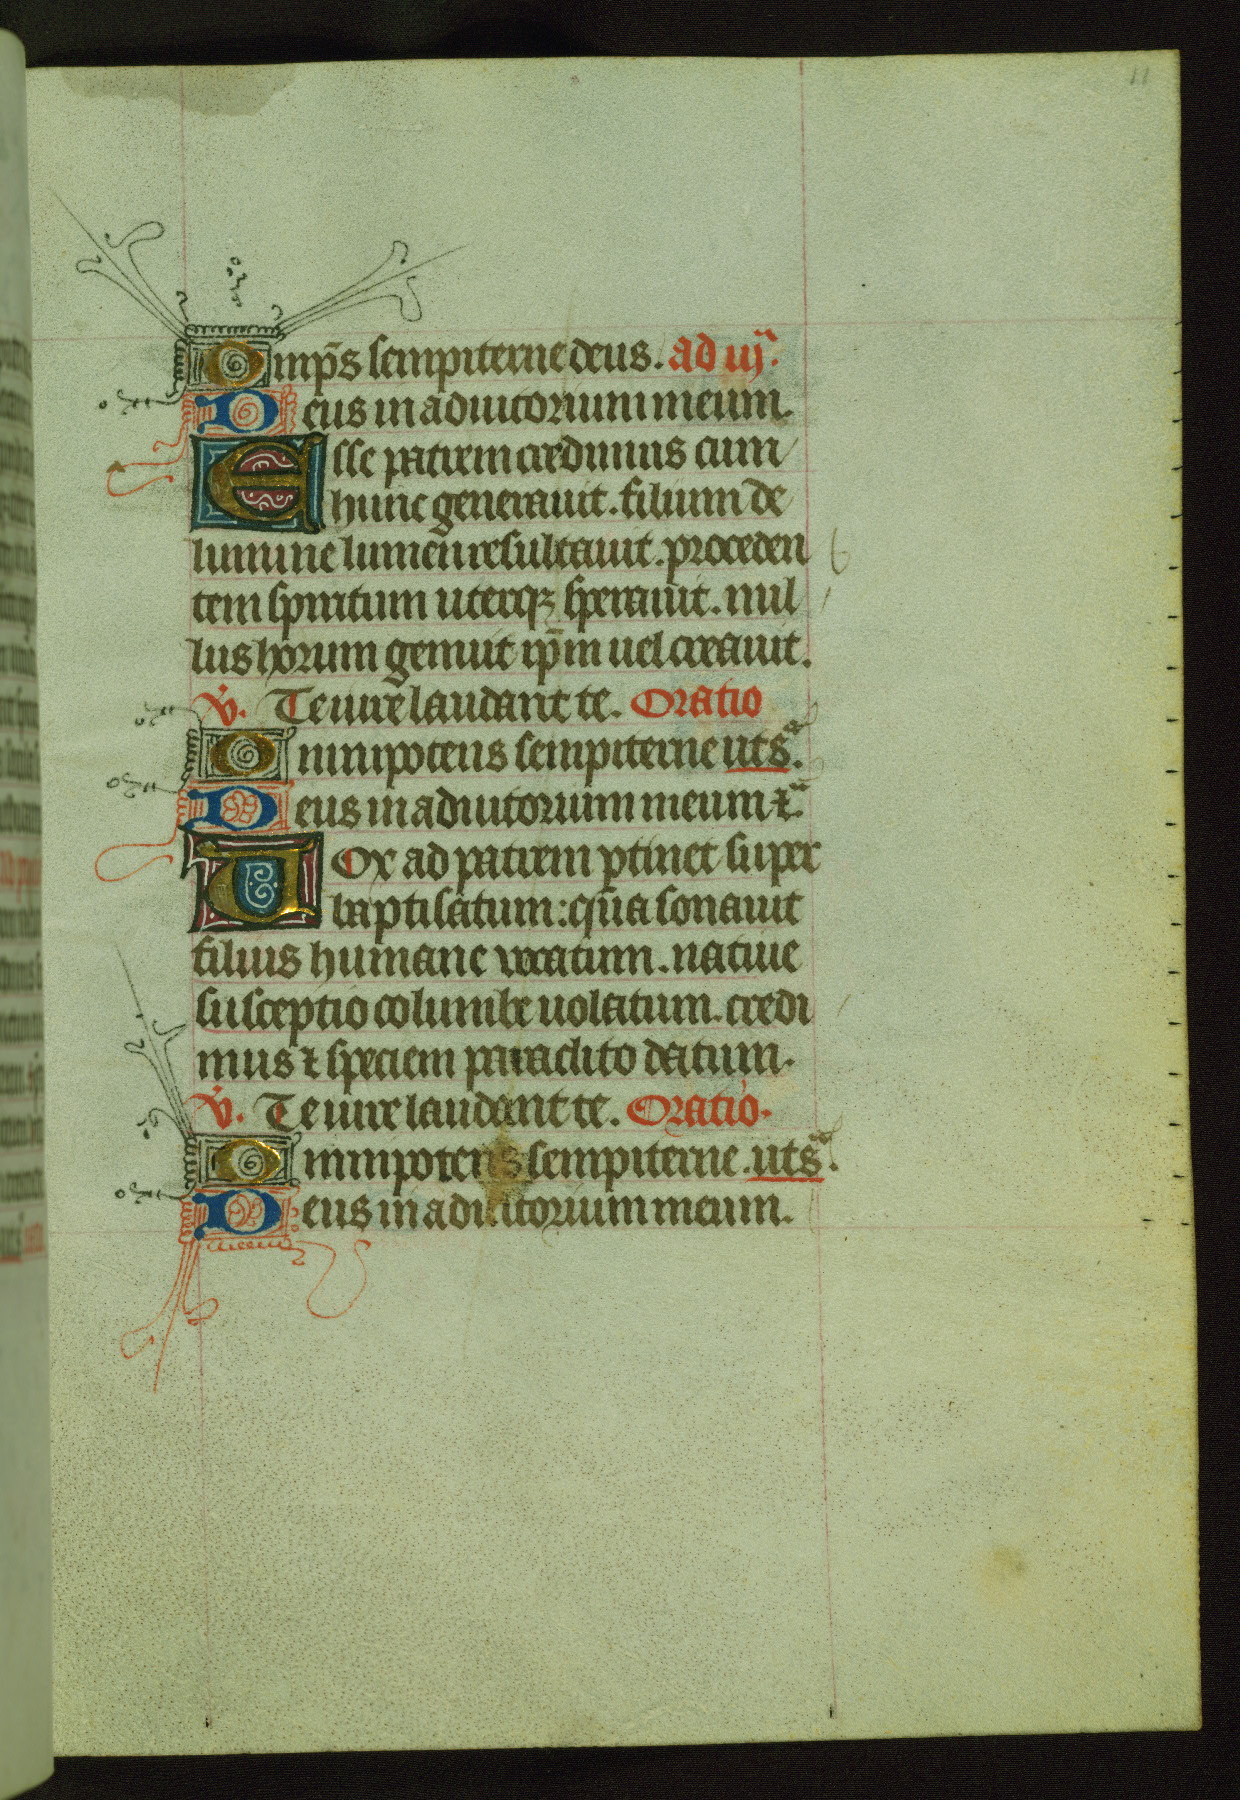 11
Omp̄s sempiterne deus. ad iij͛.
Deus in adiutorium meum.
Esse patrem credimus cum
hunc generauit. filium de
lumine lumen resultauit. proceden
tem spiritum uterqꝫ sperauit. nul
lus horum genuit ip̄m uel creauit.
V̇. Te iure laudant te. Oratio
Omnipotens sempiterne utsᵃ.
Deus in adiutorium meum ⁊.
Uox ad patrem ꝑtinet super
baptisatum: qua sonauit
filius humane uocatum. natiue
susceptio columbe uolatum. credi
mus ⁊ speciem paraclito datum.
V̇. Te iure laudant te. Oratio.
Omnipotens sempiterne. utsᵃ.
Deus in adiutorium meum.